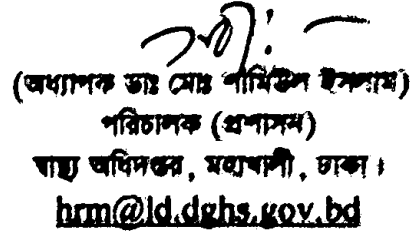 (অধ্যাপক ডাঃ মোঃ শামিউল ইসলাম)
পরিচালক (প্রশাসন)
স্বাস্থ্য অধিদপ্তর, মহাখালী, ঢাকা।
hrm@ld.dghs.gov.bd